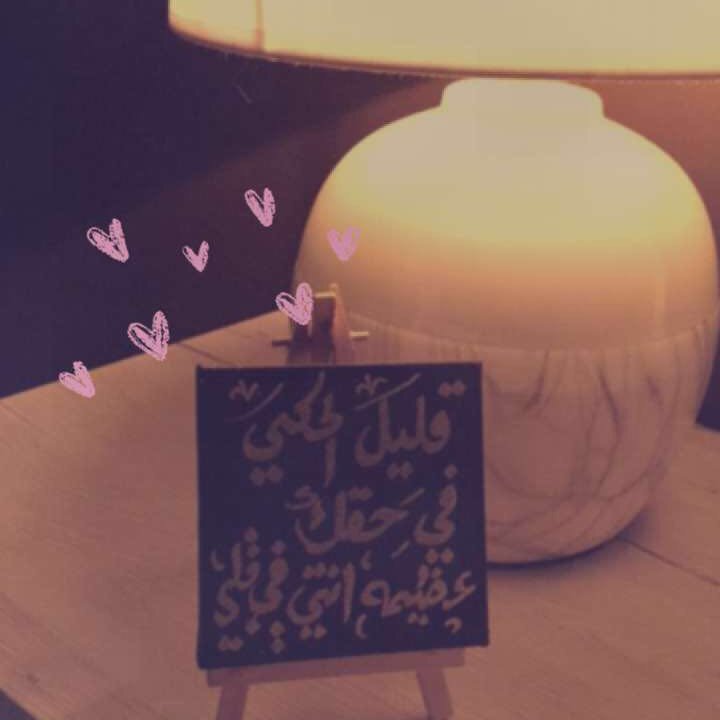 قليل الحكي
في حقك
عظيمه انتي في قلبي